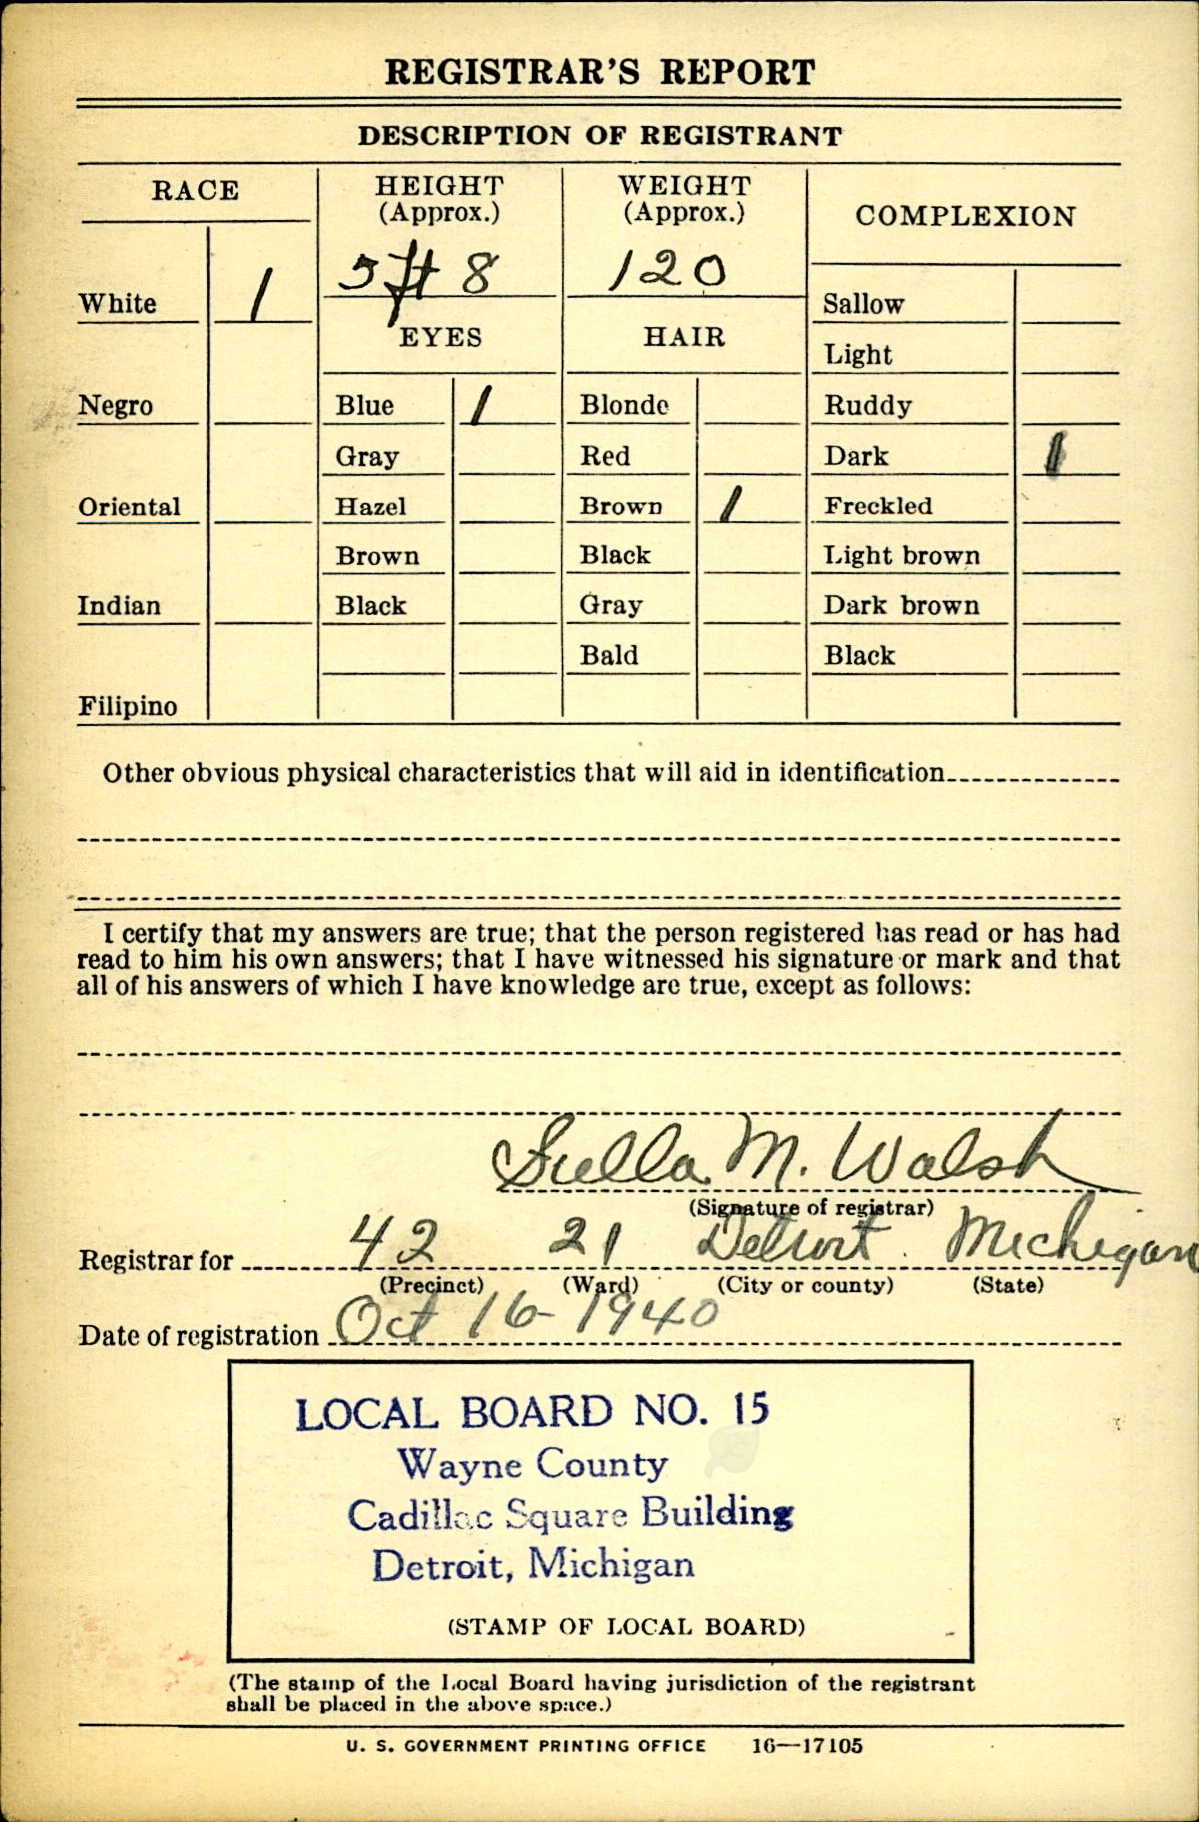 REGISTRAR'S REPORT
DESCRIPTION OF REGISTRANT
RACE
HEIGHT
(Approx.)
WEIGHT
(Approx.)
COMPLEXION
5 ft 8
120
White 1
EYES
HAIR
Sallow
Light
Negro
Blue 1
Blonde
Ruddy
Gray
Red
Dark 1
Oriental
Hazel
Brown 1
Freckled
Brown
Black
Light brown
Indian
Black
Gray
Dark brown
Bald
Black
Filipino
Other obvious physical characteristics that will aid in identification
I certify that my answers are true; that the person registered has read or has had
read to him his own answers; that I have witnessed his signature or mark and that
all of his answers of which I have knowledge are true, except as follows:
M. Walsh
(Signature of registrar)
Registrar for 42 21 Detroit Michigan
(Precinct) (Ward) (City or county) (State)
Date of registration Oct 16-1940
LOCAL BOARD NO. 15
Wayne County
Cadillac Square Building
Detroit, Michigan
(STAMP OF LOCAL BOARD)
(The stamp of the Local Board having jurisdiction of the registrant
shall be placed in the above space.)
U. S. GOVERNMENT PRINTING OFFICE 16—17105